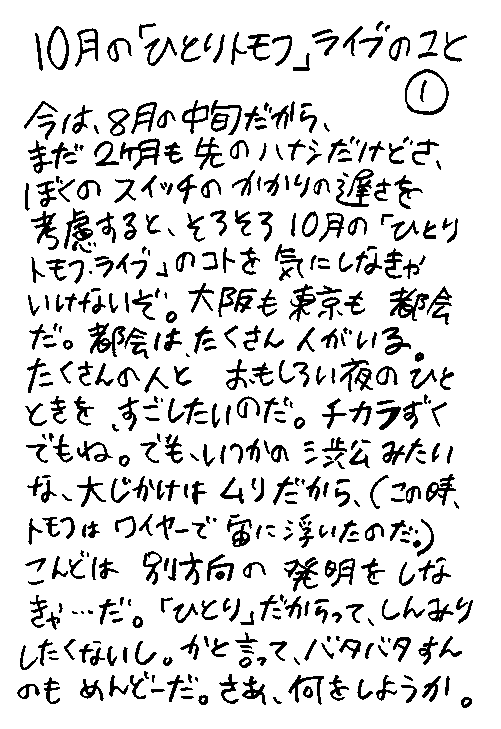 10月の「ひとりトモフ」ライブのコと
①
今は、8月の中旬だから、
まだ 2ケ月も 先の ハナシだけどさ、
ぼくの スイッチの かかりの遅さを
考慮すると、そろそろ 10月の「ひとり
トモフ・ライブ」のコトを 気にしなきゃ
いけないぞ。大阪も東京も 都会
だ。都会は、たくさん人がいる。
たくさんの人と おもしろい夜のひと
ときを、すごしたいのだ。チカラずく
でもね。でも、いつかの 渋公みたい
な、大じかけは ムリだから、(この時、
トモフは ワイヤーで 宙に浮いたのだ。)
こんどは 別方向の 発明を しな
きゃ…だ。「ひとり」だからって、しんみり
したくないし。かと言って、バタバタすん
のも めんどーだ。さあ、何をしようか。